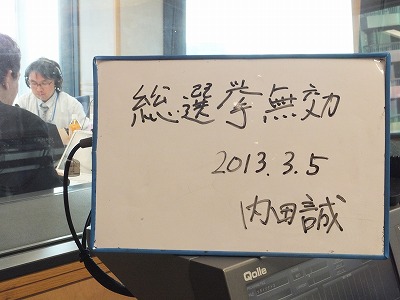 総選挙無効
2013.3.5
内田誠
Qolle